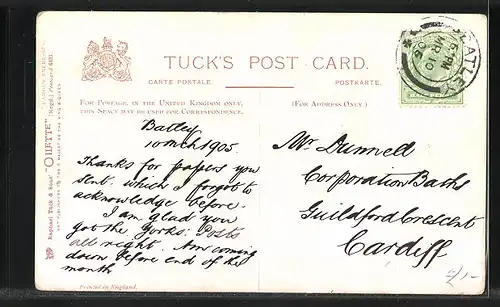 TUCK'S POST CARD.
CARTE POSTALE.
POSTKARTE.
FOR POSTAGE, IN THE UNITED KINGDOM ONLY,
THIS SPACE MAY BE USED FOR CORRESPONDENCE.
(FOR ADDRESS ONLY.)
BATLEY
MR 10
Batley
10 Mch 1905.
Thanks for papers you
sent, which I forgot to
acknowledge before.
I am glad you
got the Yorks: Posts
all right. Am coming
down before end of the
month
Mr Dunnell
Corporation Baths
Guildford Crescent
Cardiff
Printed in England.
Raphael Tuck & Sons' "OILETTE"